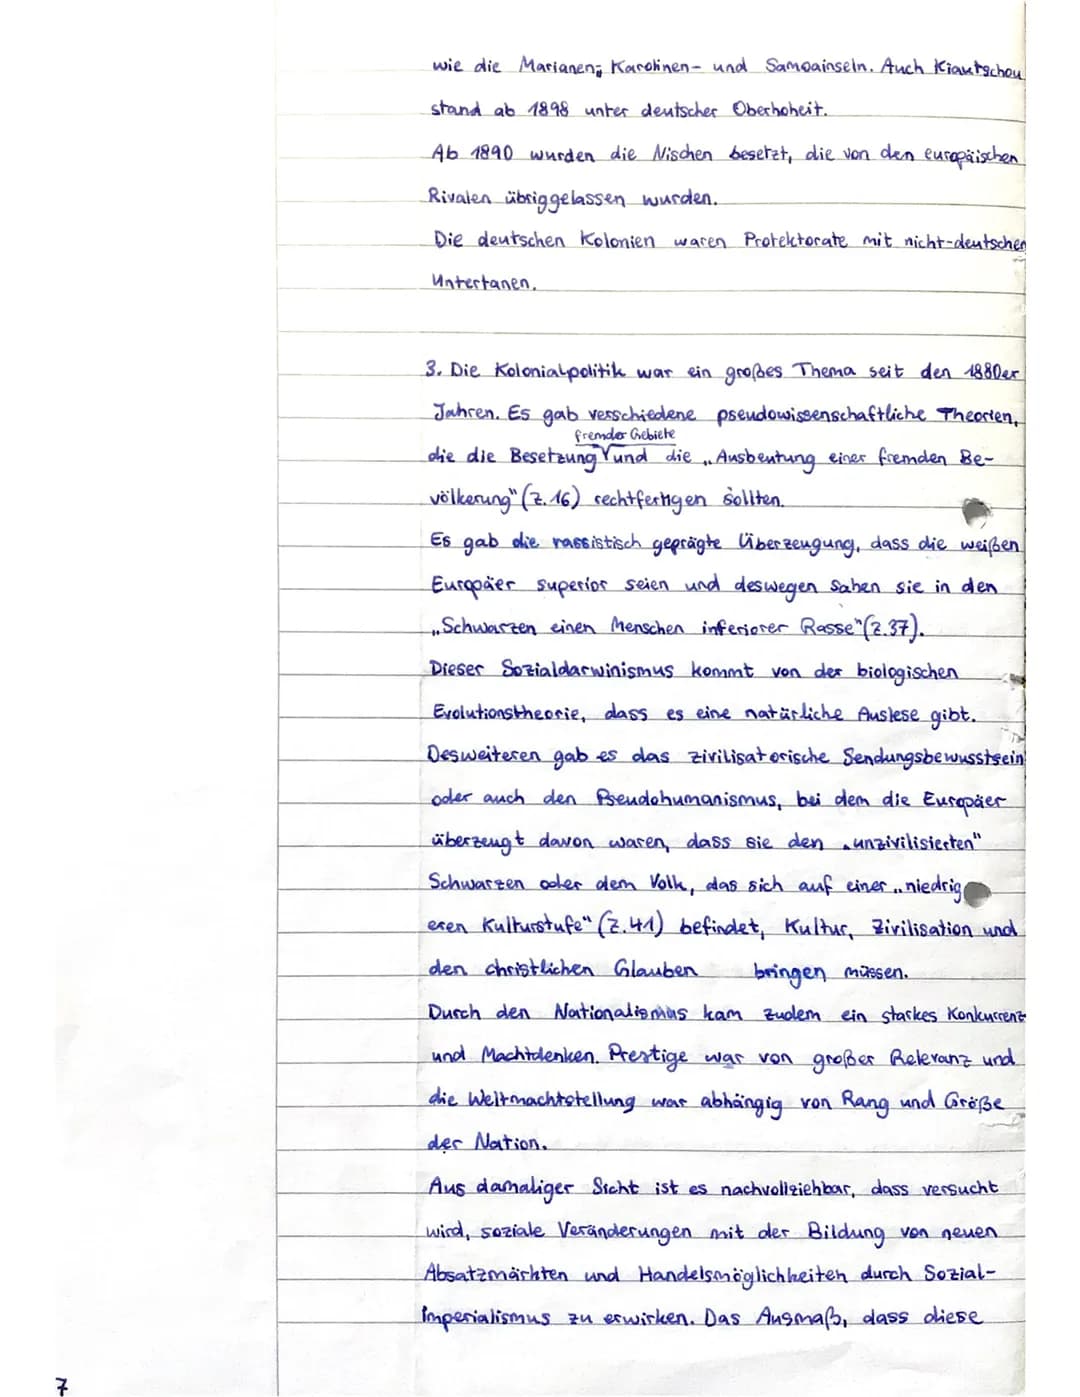 wie die Marianen, Karolinen- und Samoainseln. Auch Kiautschou
stand ab 1898 unter deutscher Oberhoheit.
Ab 1890 wurden die Nischen besetzt, die von den europäischen
Rivalen übriggelassen wurden.
Die deutschen Kolonien waren Protektorate mit nicht-deutschen
Untertanen.
3. Die Kolonialpolitik war ein großes Thema seit den 1880er
Jahren. Es gab verschiedene pseudowissenschaftliche Theorien,
fremder Gebiete
die die Besetzung und die „Ausbeutung einer fremden Be-
völkerung" (Z.16) rechtfertigen sollten.
Es gab die rassistisch geprägte Überzeugung, dass die weißen
Europäer superior seien und deswegen sahen sie in den
„Schwarzen einen Menschen inferiorer Rasse" (Z.37).
Dieser Sozialdarwinismus kommt von der biologischen
Evolutionstheorie, dass es eine natürliche Auslese gibt.
Desweiteren gab es das zivilisatorische Sendungsbewusstsein
oder auch den Pseudohumanismus, bei dem die Europäer
überzeugt davon waren, dass sie den „unzivilisierten"
Schwarzen oder dem Volk, das sich auf einer „niedrig
eren Kulturstufe" (Z.41) befindet, Kultur, Zivilisation und
den christlichen Glauben bringen müssen.
Durch den Nationalismus kam zudem ein starkes Konkurrenz
und Machtdenken. Prestige war von großer Relevanz und
die Weltmachtstellung war abhängig von Rang und Größe
der Nation.
Aus damaliger Sicht ist es nachvollziehbar, dass versucht
wird, soziale Veränderungen mit der Bildung von neuen
Absatzmärkten und Handelsmöglichkeiten durch Sozial-
imperialismus zu erwirken. Das Ausmaß, dass diese
7